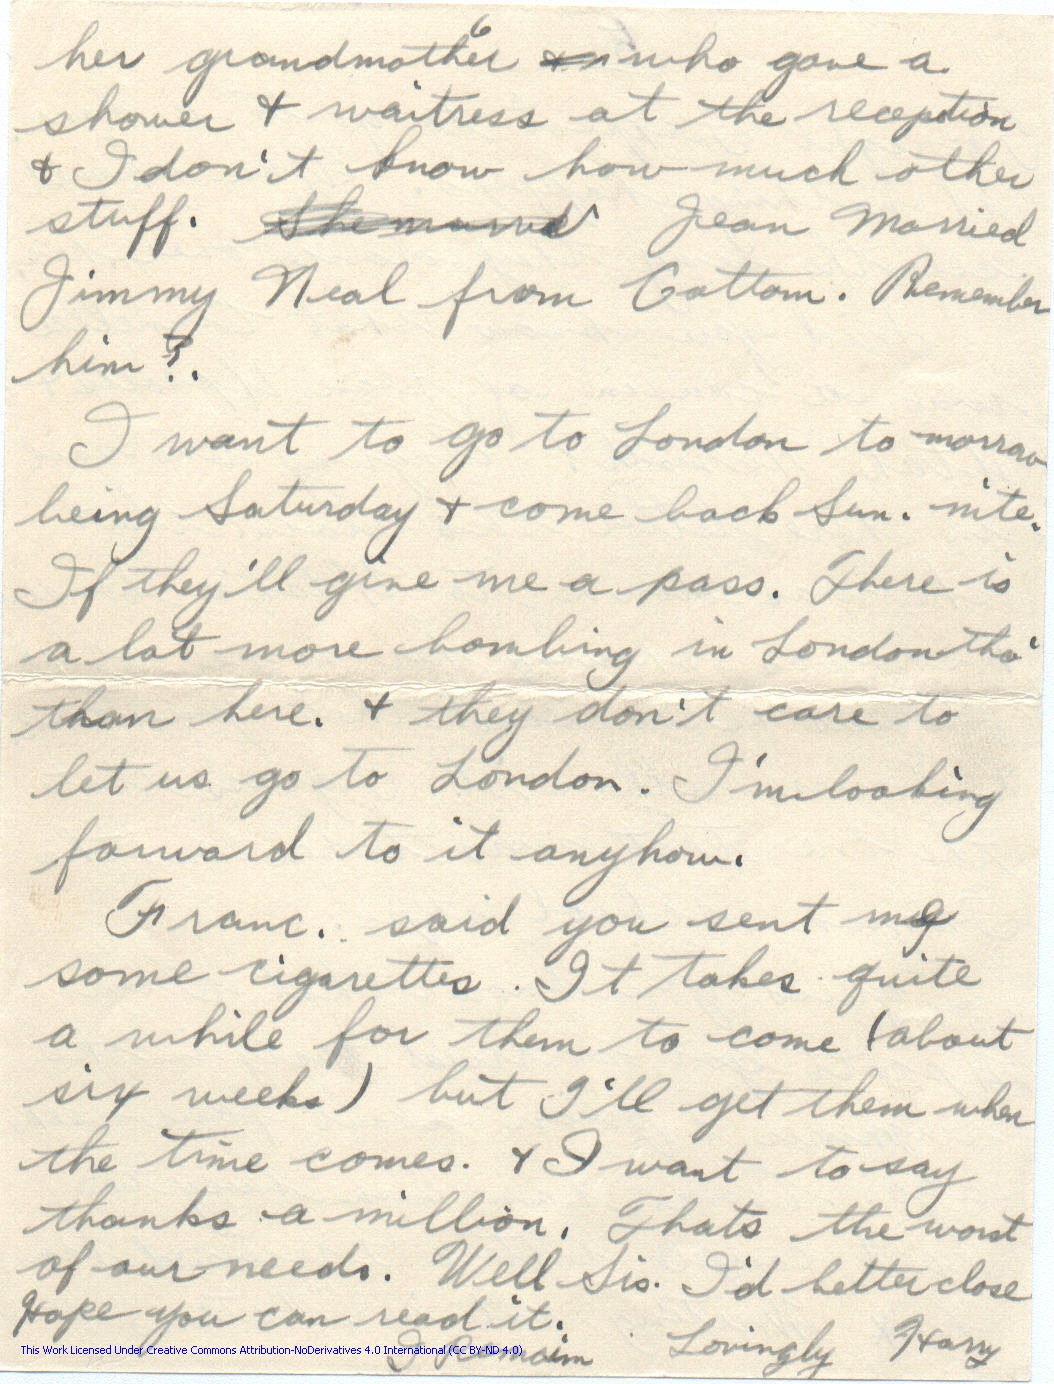 6
her grandmother who gave a
shower & waitress at the reception
& I don't know how much other
stuff. She married Jean Married
Jimmy Neal from Cottom. Remember
him?.
I want to go to London to morrow
being Saturday & come back Sun. nite.
If they'll give me a pass. There is
a lot more bombing in London tho'
than here. & they don't care to
let us go to London. I'm looking
forward to it anyhow.
Franc. said you sent me
some cigarettes. It takes quite
a while for them to come (about
six weeks) but I'll get them when
the time comes. & I want to say
thanks a million. Thats the worst
of our needs. Well Sis. I'd better close
Hope you can read it.
I Remain Lovingly Harry
This Work Licensed Under Creative Commons Attribution-NoDerivatives 4.0 International (CC BY-ND 4.0)